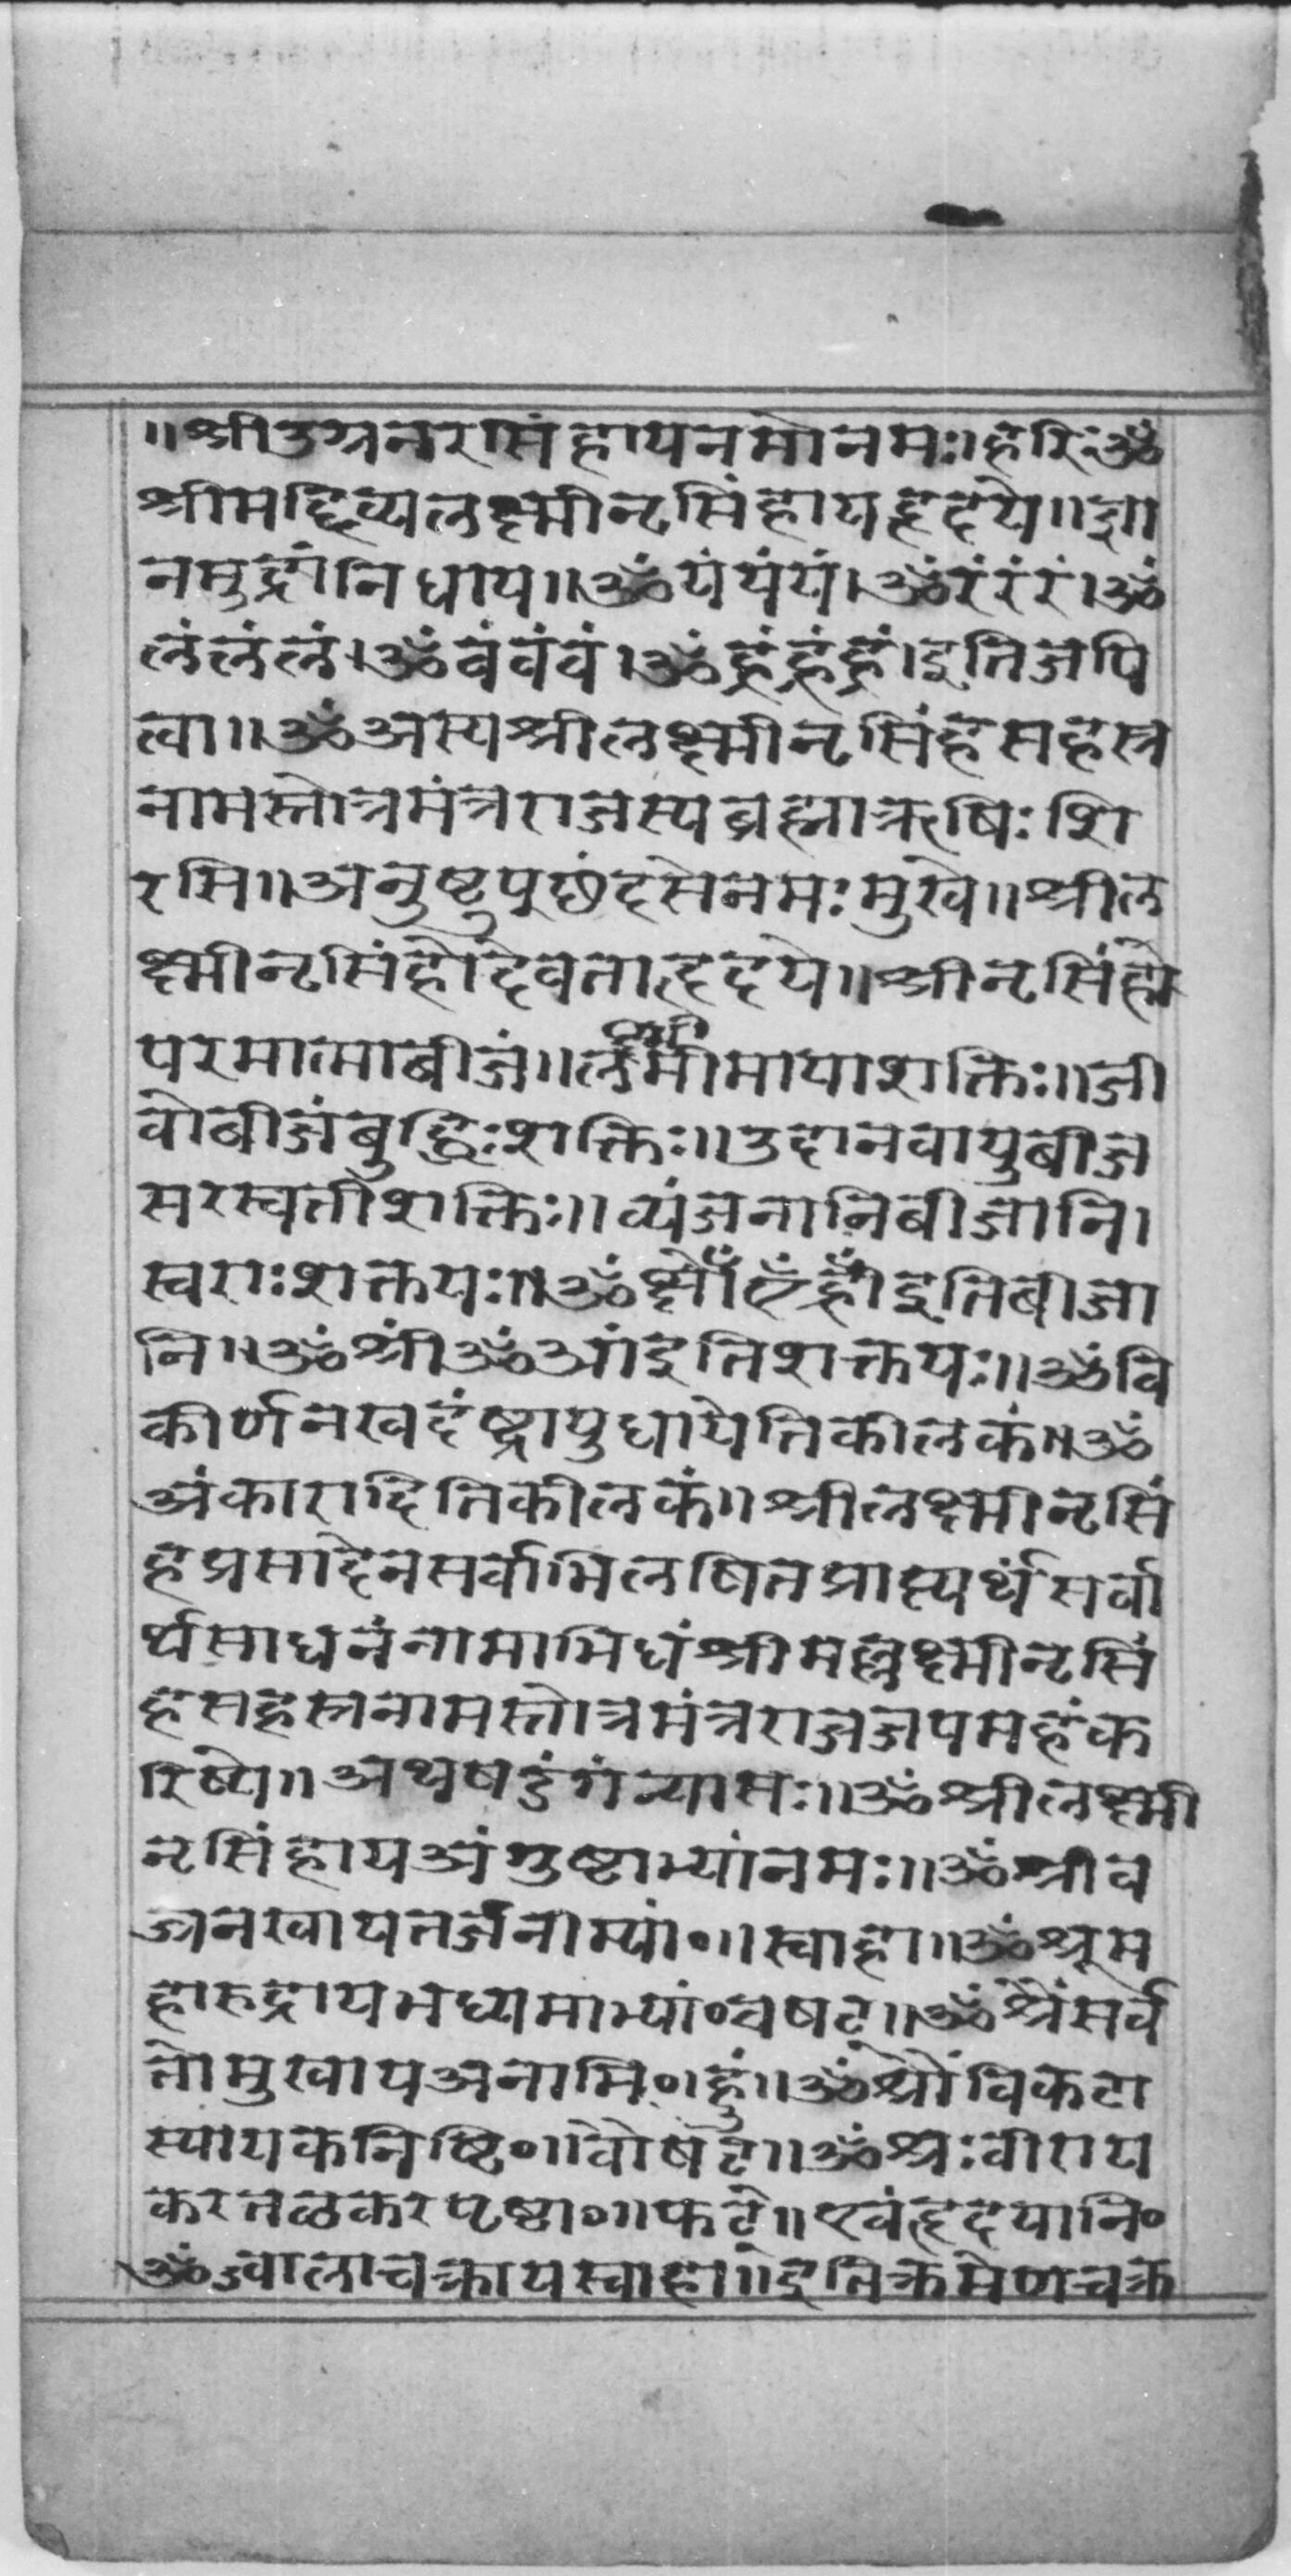 ॥श्रीउग्रनरासिंहायनमोनमः।हरिःॐ
श्रीमद्दिव्यलक्ष्मीनृसिंहायहृदये॥ज्ञा
नमुद्रांनिधाय॥ॐयंयंयं।ॐरंरंरं।ॐ
लंलंलं।ॐवंवंवं।ॐह्रंह्रंह्रं।इतिजपि
त्वा॥ॐअस्यश्रीलक्ष्मीनृसिंहसहस्र
नामस्तोत्रमंत्रराजस्यब्रह्माऋषिःशि
रसि॥अनुष्टुप्छंदसेनमःमुखे॥श्रील
क्ष्मीनृसिंहोदेवताहृदये॥श्रीनृसिंहो
परमात्माबीजं॥लक्ष्मीमायाशक्तिः॥जी
वोबीजंबुद्धिःशक्तिः॥उदानवायुबीज
सरस्वतीशक्तिः॥व्यंजनानिबीजानि।
स्वराःशक्तयः॥ॐक्ष्रौँह्रीँइतिबीजा
नि॥ॐश्रींॐआंइतिशक्तयः॥ॐवि
कीर्णनखदंष्ट्रायुधायेतिकीलकं॥ॐ
अंकारादितिकीलकं॥श्रीलक्ष्मीनृसिं
हप्रसादेनसर्वाभिलषितप्राप्त्यर्थंसर्वा
र्थसाधनंनामाभिधंश्रीमल्लक्ष्मीनृसिं
हसहस्रनामस्तोत्रमंत्रराजजपमहंक
रिष्ये॥अथषडंगंन्यासः॥ॐश्रीलक्ष्मी
नृसिंहायअंगुष्टाभ्यांनमः॥ॐश्रीव
ज्रनखायतर्जनीभ्यां०॥स्वाहा॥ॐश्रूम
हारुद्रायमध्यमाभ्यां०वषट्॥ॐश्रैंसर्व
तोमुखायअनामि०।हुं॥ॐश्रौंविकटा
स्यायकनिष्टि०॥वौषट्॥ॐश्रःवीराय
करतळकरपृष्ठा०॥फट्॥एवंहृदयानि०
ॐज्वालाचक्रायस्वाहा॥इतिक्रमेणचक्र